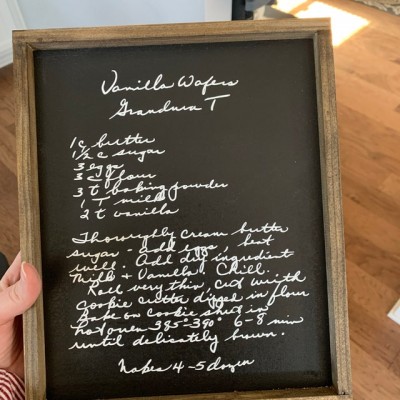 Vanilla Wafers
Grandma T
1 c butter
1 1/2 c sugar
3 eggs
3 c flour
3 t baking powder
1 T milk
2 t vanilla
Thoroughly cream butter
sugar - add eggs, beat
well. Add dry ingredient
Milk + Vanilla. Chill.
Roll very thin, cut with
cookie cutter dipped in flour
Bake on cookie sheet in
hot oven 385°-390° 6-8 min
until delicately brown.
Makes 4-5 dozen